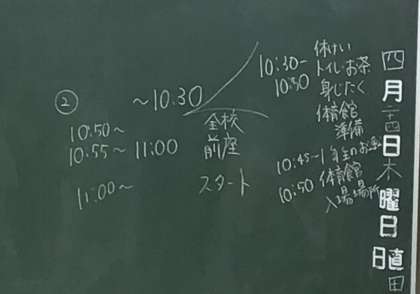 四月二十四日木曜日 日直 田
10:30~ 休けい
10:50 トイレ・お茶
身じたく
体育館
準備
10:45~1年生のお迎
10:50 体育館
入場場所
② ~10:30
10:50~ 全校
10:55~11:00 前座
11:00~ スタート